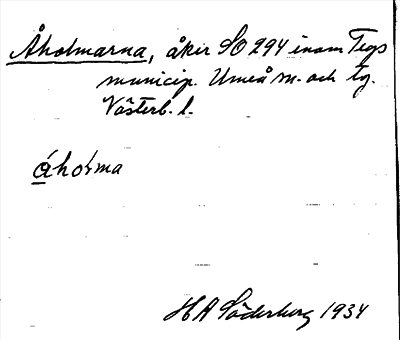 Åholmarna, åkir SO 294 inom Tegs
municip. Umeå sn. och tg.
Västerb. l.
åhoɫma
H A Söderberg 1934